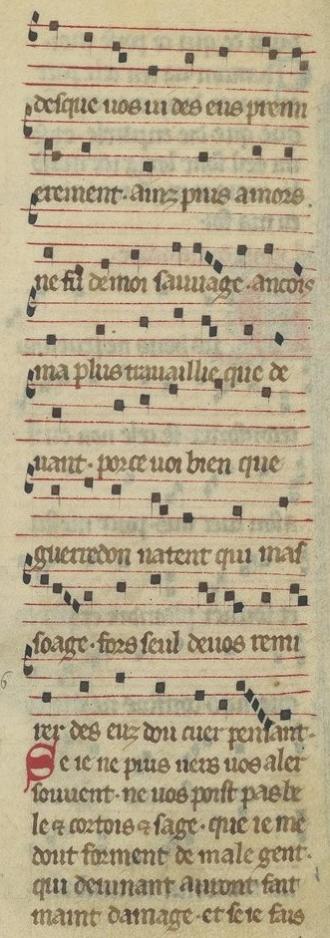 desque uos ui des eus premi
erement. ainz puis amors
ne fu de moi sauuage. ancois
ma plus trauaillie que de
uant. por ce uoi bien que
guerredon natent qui mas
soage. fors seul de uos remi
rer des euz dou cuer pensant.
Se ie ne puis uers uos aler
souuent. ne uos poist pas be
le & cortois & sage. que ie me
dout forment de male gent.
qui deuinant auront fait
maint damage. et se ie fais